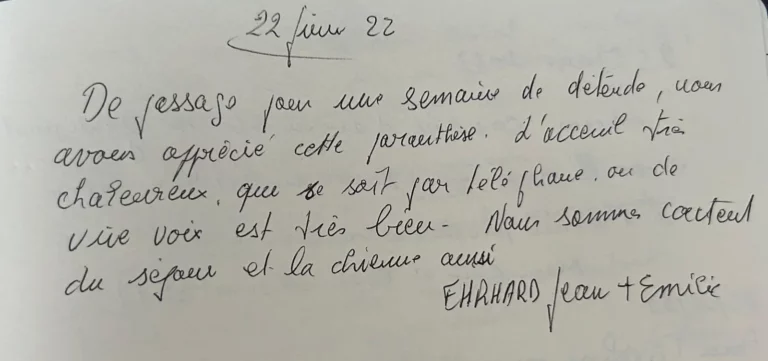 22 févr 22
De passage pour une semaine de détende, nous
avons apprécié cette paranthèse. L'acceuil très
chaleureux, que se soit par téléphone. ou de
vive voix est très bien - Nous sommes contents
du séjour et la chienne aussi
EHRHARD Jean + Emilie